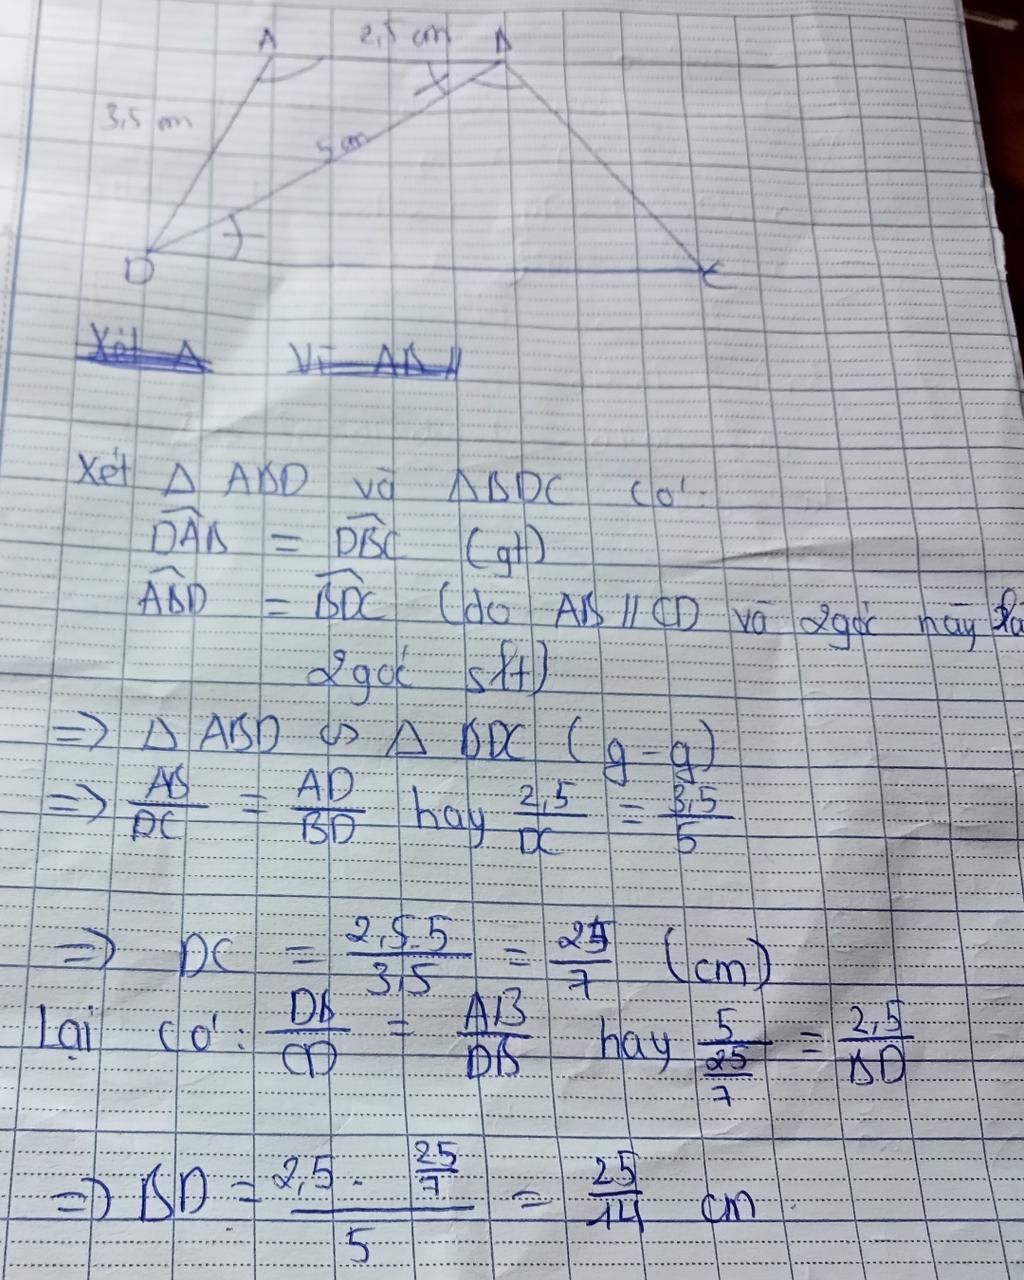 A 2,5 cm B
3,5 cm
5 cm
D C
Xét Δ Vì AB //
Xét Δ ABD và ΔBDC có:
$\widehat{DAB}$ = $\widehat{DBC}$ (gt)
$\widehat{ABD}$ = $\widehat{BDC}$ (do AB // CD và 2góc này là
2góc slt)
=> Δ ABD ∽ Δ BDC (g-g)
=> $\frac{AB}{DC}$ = $\frac{AD}{BD}$ hay $\frac{2,5}{DC}$ = $\frac{3,5}{5}$
=> DC = $\frac{2,5.5}{3,5}$ = $\frac{25}{7}$ (cm)
Lại có: $\frac{DB}{CD}$ = $\frac{AB}{DB}$ hay $\frac{5}{\frac{25}{7}}$ = $\frac{2,5}{BD}$
=> BD = $\frac{2,5 . \frac{25}{7}}{5}$ = $\frac{25}{14}$ cm